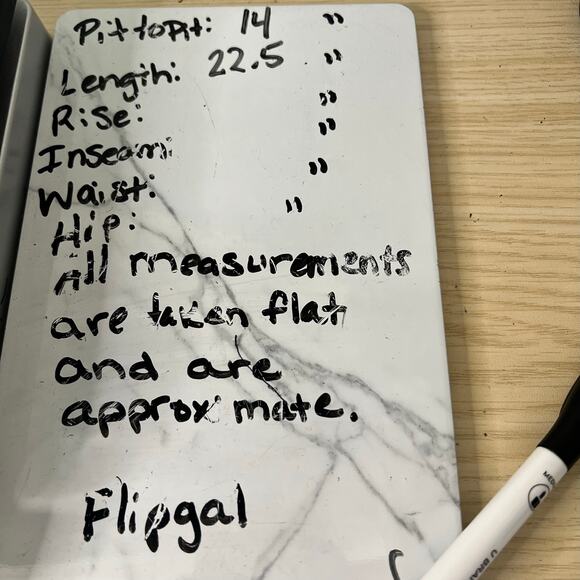 Pit to Pit: 14 "
Length: 22.5 "
Rise: "
Inseam: "
Waist: "
Hip: "
All measurements
are taken flat
and are
approximate.
Flipgal